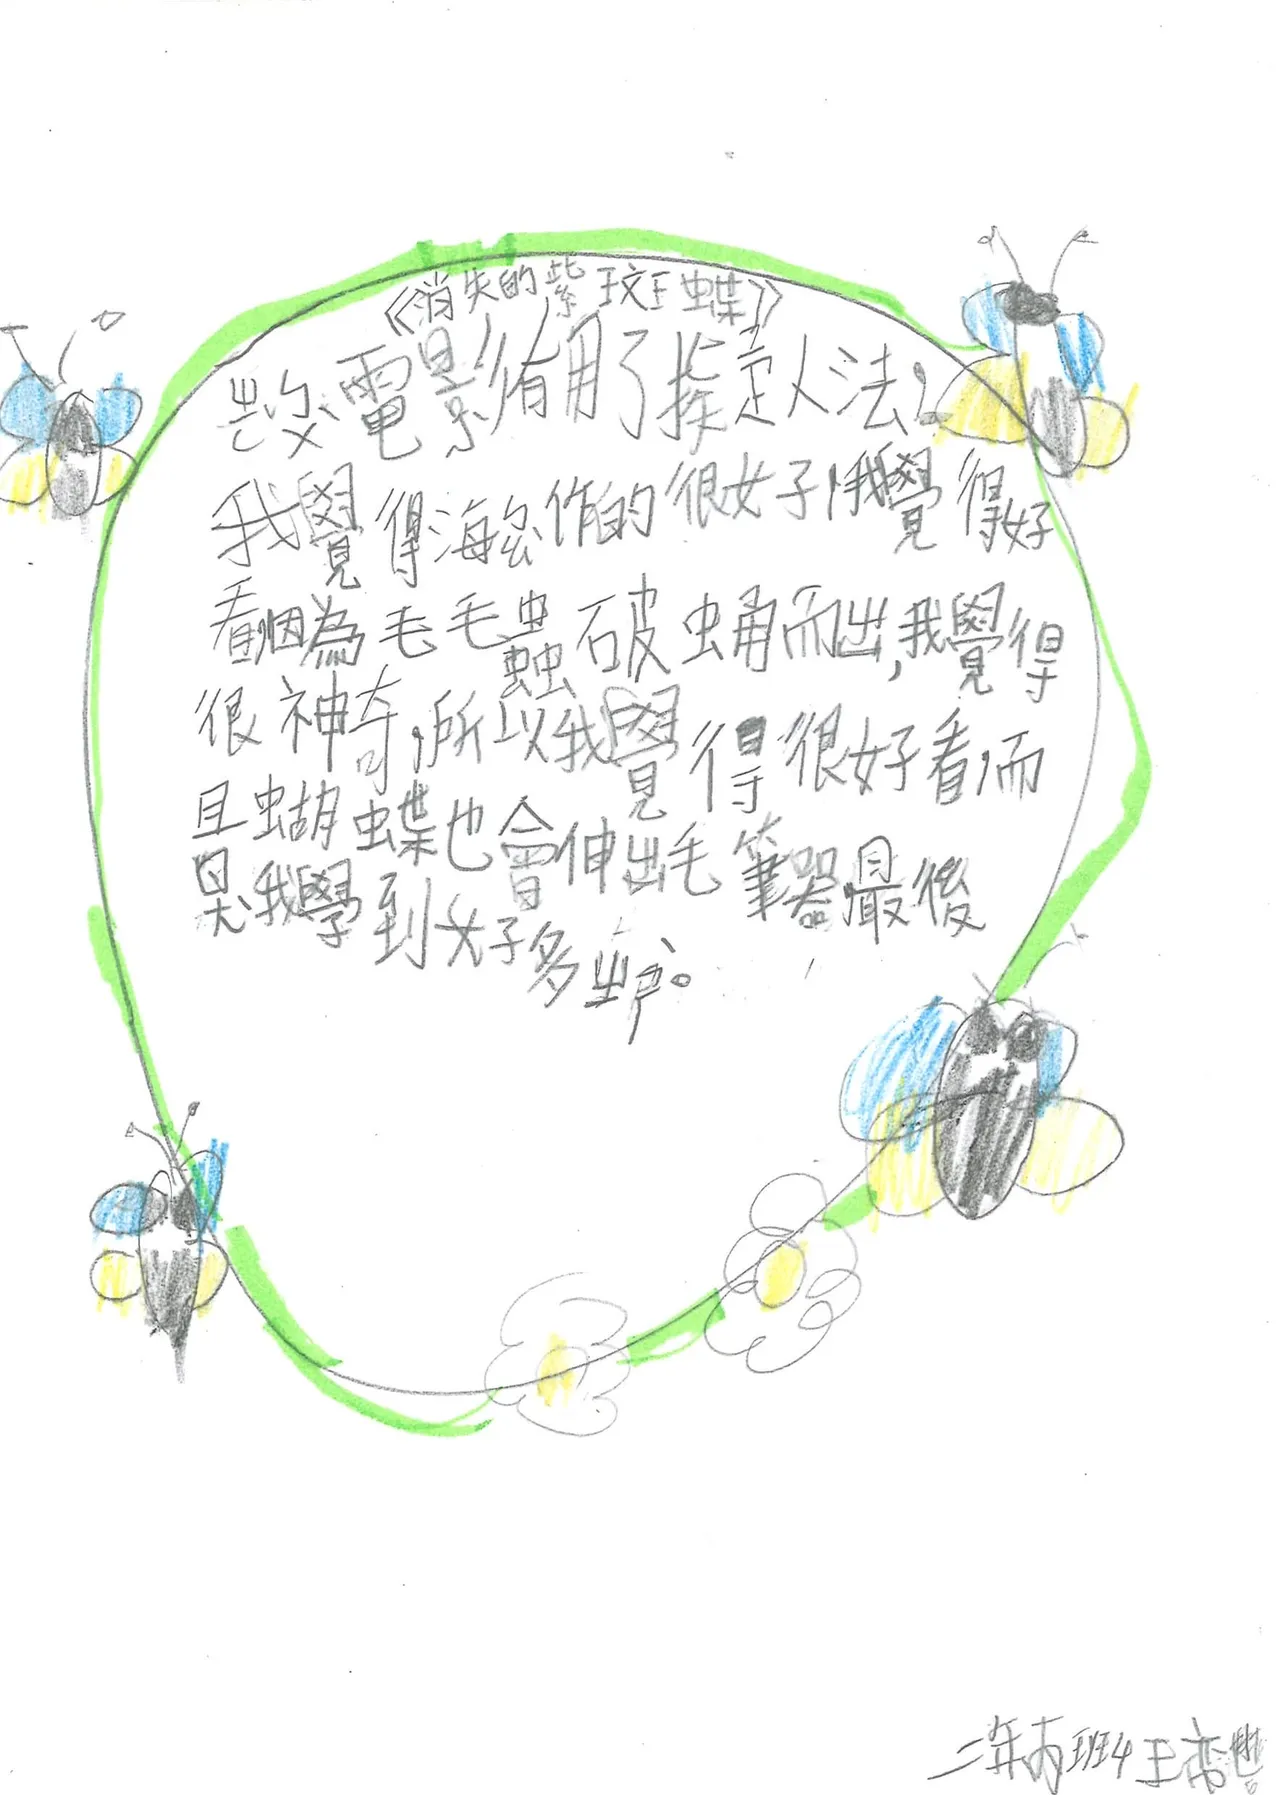 《消失的紫斑蝶》
電影有用了擬人法,
我覺得海公作的很好,我覺得好
看,因為毛毛蟲破蛹而出,我覺得
很神奇,所以我覺得很好看,而
且蝴蝶也會伸出毛筆器最後
是我學到好多。
二年丙班4王